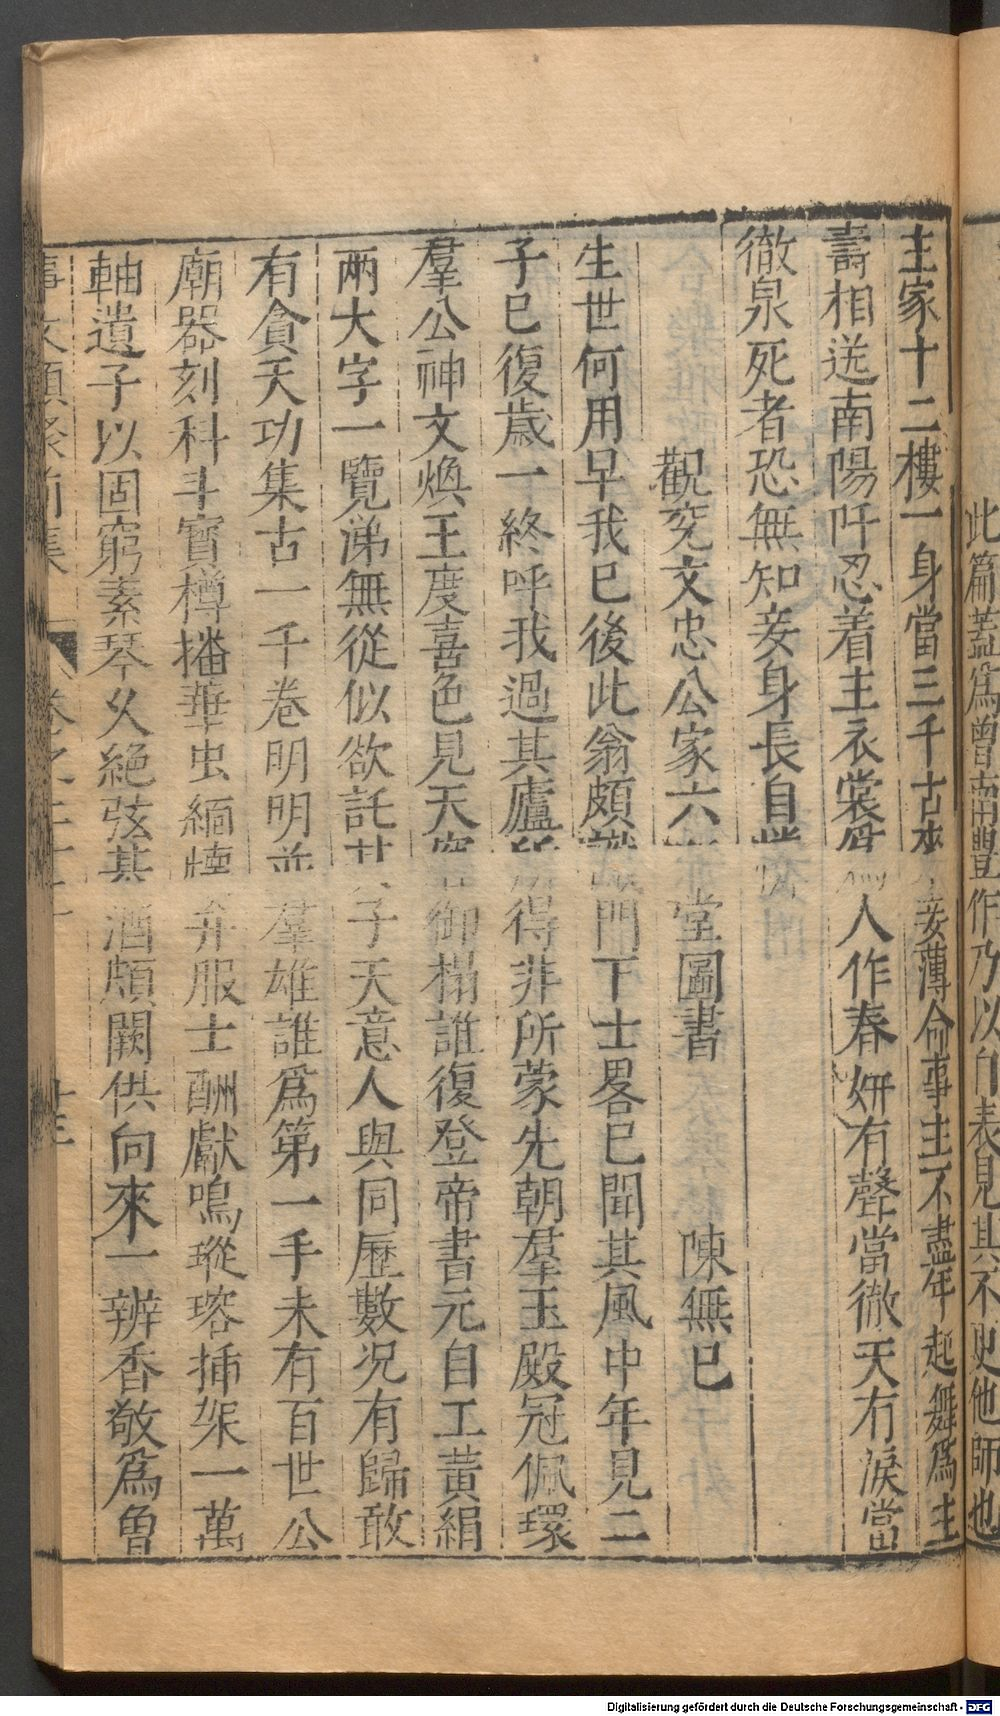 此篇蓋爲曾南豐作乃以自表見其不更他師也
主家十二樓一身當三千古來妾薄命事主不盡年起舞爲主
壽相送南陽阡忍着主衣裳爲人作春妍有聲當徹天有淚當
徹泉死者恐無知妾身長自
觀兖文忠公家六堂圖書 陳無已
生世何用早我已後此翁頗識門下士畧已聞其風中年見二
子已復歲一終呼我過其廬所得非所蒙先朝羣玉殿冠佩環
羣公神文煥王度喜色見天容御榻誰復登帝書元自工黃絹
兩大字一覽涕無從似欲託其子天意人與同歷數况有歸敢
有貪天功集古一千卷明明並羣雄誰爲第一手未有百世公
廟器刻科斗寳樽播華虫緬懷弁服士酬獻鳴瑽瑢插架一萬
軸遺子以固窮素琴久絕弦棊酒頗闕供向來一辨香敬爲曾
事文類聚前集 卷之二十 十三
Digitalisierung gefördert durch die Deutsche Forschungsgemeinschaft - DFG